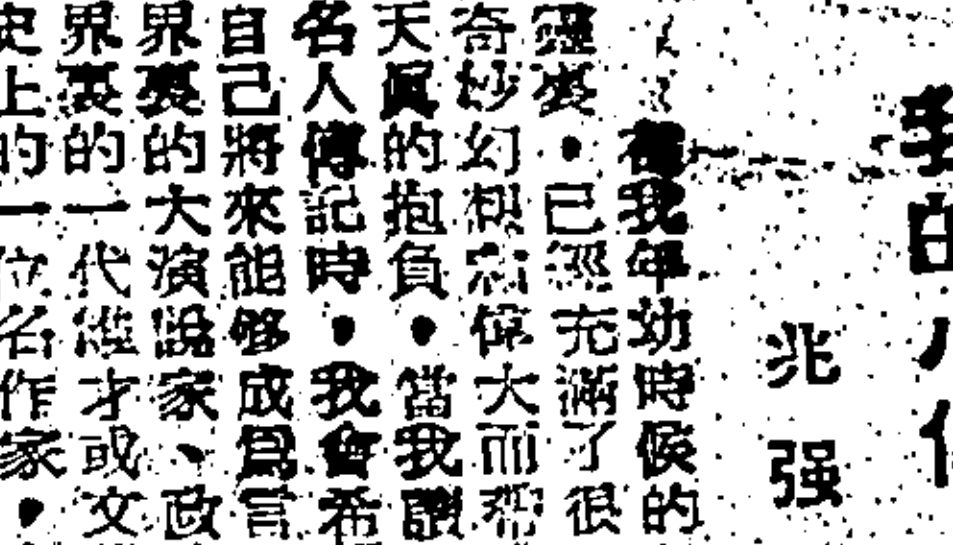 我的
兆强
在我年幼時候的
裏·已經充滿了很
奇妙幻想和偉大而
天真的抱負·當我讀
名人傳記時·我會希
自己將來能够成爲言
界裏的大演說家、政
界裏的一代 才或文
史上的一位名作家·